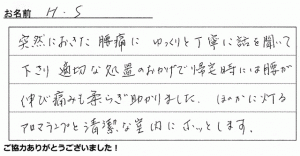 お名前 H.S
突然におきた腰痛に ゆっくりと丁寧に話を聞いて
下さり 適切な処置のおかげで帰宅時には腰が
伸び痛みも柔らぎ助かりました。ほのかに灯る
アロマランプと清潔な室内にホッとします。
ご協力ありがとうございました!